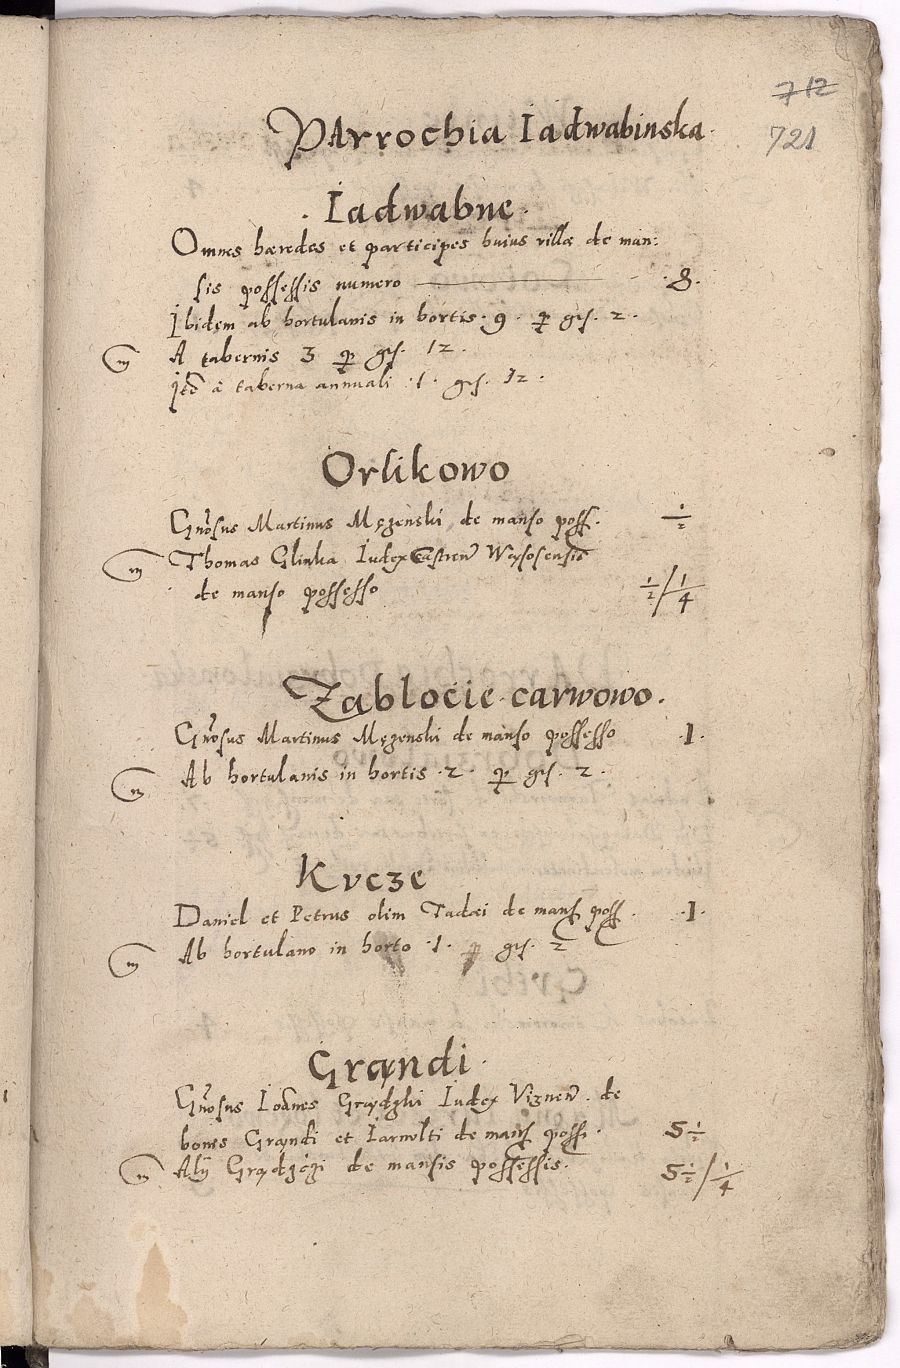 712
721
PArrochia Iadwabinska.
. Iadwabne .
Omnes hæredes et participes huius villæ de man:
sis possessis numero ——— .8.
Ibidem ab hortulanis in hortis .9. p gr. 2.
A tabernis 3 p gr. 12.
Itē à taberna annuali .1. gr. 12.
Orlikowo
Gnōsus Martinus Mężenski de manso poss. 1/2
Thomas Glinka Iudex Castren̄ Wąsosensis
de manso possesso 1/2 / 1/4
Zablocie carwowo.
Gnōsus Martinus Mężenski de manso possesso .1.
Ab hortulanis in hortis .2. p gr. 2.
Kvcze
Daniel et Petrus olim Tadæi de mans poss. .1.
Ab hortulano in horto .1. p gr. 2
Grądi.
Gnōsus Ioānes Grądzki Iudex Viznen̄. de
bonis Grądi et Iarnolti de mans poss. 5 1/2
Alÿ Grądzczi de mansis possessis. 5 1/2 / 1/4